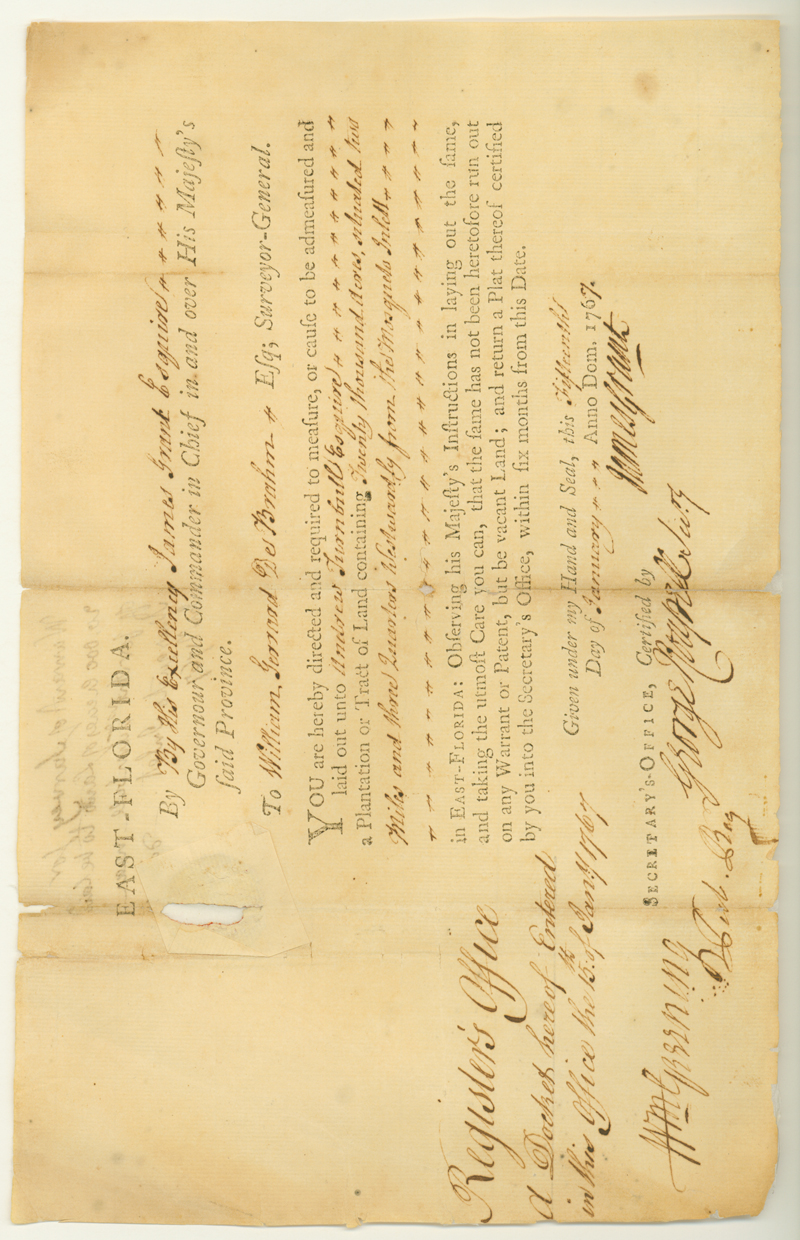 EAST-FLORIDA.
By His Excellency James Grant Esquire
Governour and Commander in Chief in and over His Majeſty's
ſaid Province.
To William Gerrard De Brahm Eſq; Surveyor-General.
YOU are hereby directed and required to meaſure, or cauſe to be admeaſured and
laid out unto Andrew Turnbull Esquire
a Plantation or Tract of Land containing Twenty thousand Acres, situated two
Miles and three Quarters Westwardly from the Musqueto Inlett
in EAST-FLORIDA: Obſerving his Majeſty's Inſtructions in laying out the ſame,
and taking the utmoſt Care you can, that the ſame has not been heretofore run out
on any Warrant or Patent, but be vacant Land; and return a Plat thereof certified
by you into the Secretary's Office, within ſix months from this Date.
Given under my Hand and Seal, this Fifteenth
Day of January Anno Dom. 1767.
James Grant
SECRETARY'S-OFFICE, Certified by
George
Register's Office
A Docket hereof Entered
in this Office the 15th of Jany 1767
Wm Greening
Reg